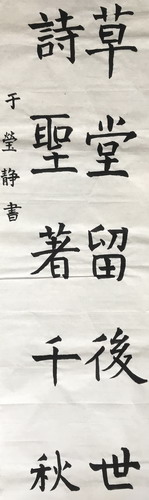 草堂留後世
詩聖著千秋
于瑩静書